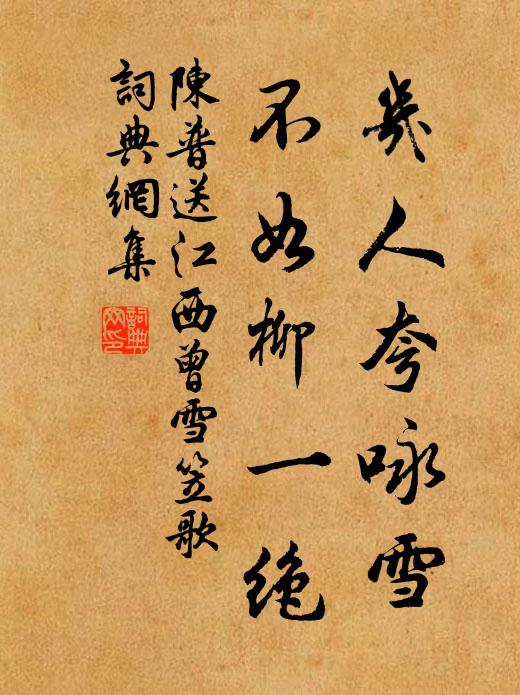 幾人夸咏雪
不如柳一絶
陳普送江西曾雪笠歌
詞典網集
詞典網印